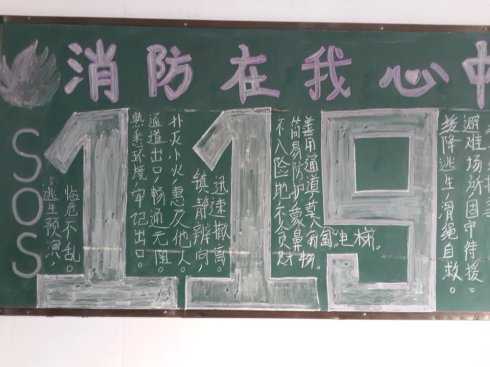 消防在我心中
SOS
119
逃生预演，
临危不乱。
熟悉环境，牢记出口。
通道出口，畅通无阻。
扑灭小火，惠及他人。
镇静辨向，
迅速撤离。
不入险地，不贪财
简易防护，蒙鼻
善用通道，莫入
电梯。
缓降逃生，滑绳自救。
避难场所，固守待援。